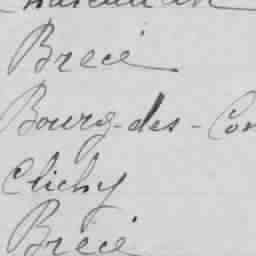 Brecé
Bourg-des-Com
Clichy
Brécé